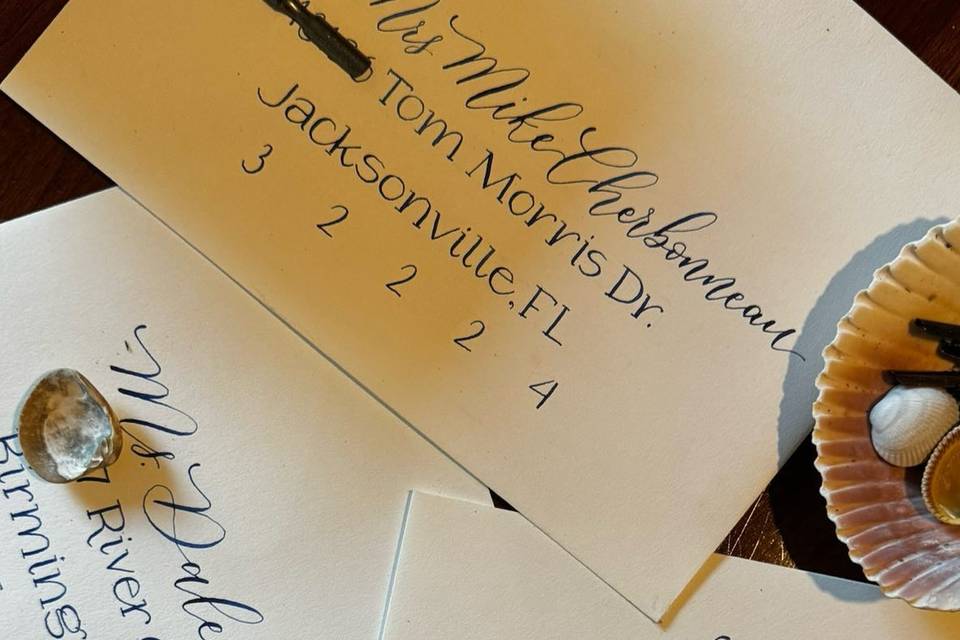 Mrs Mike Cherbonneau
Tom Morris Dr.
Jacksonville, FL
3 2 2 2 4
Ms. Dale
7 River
Birming